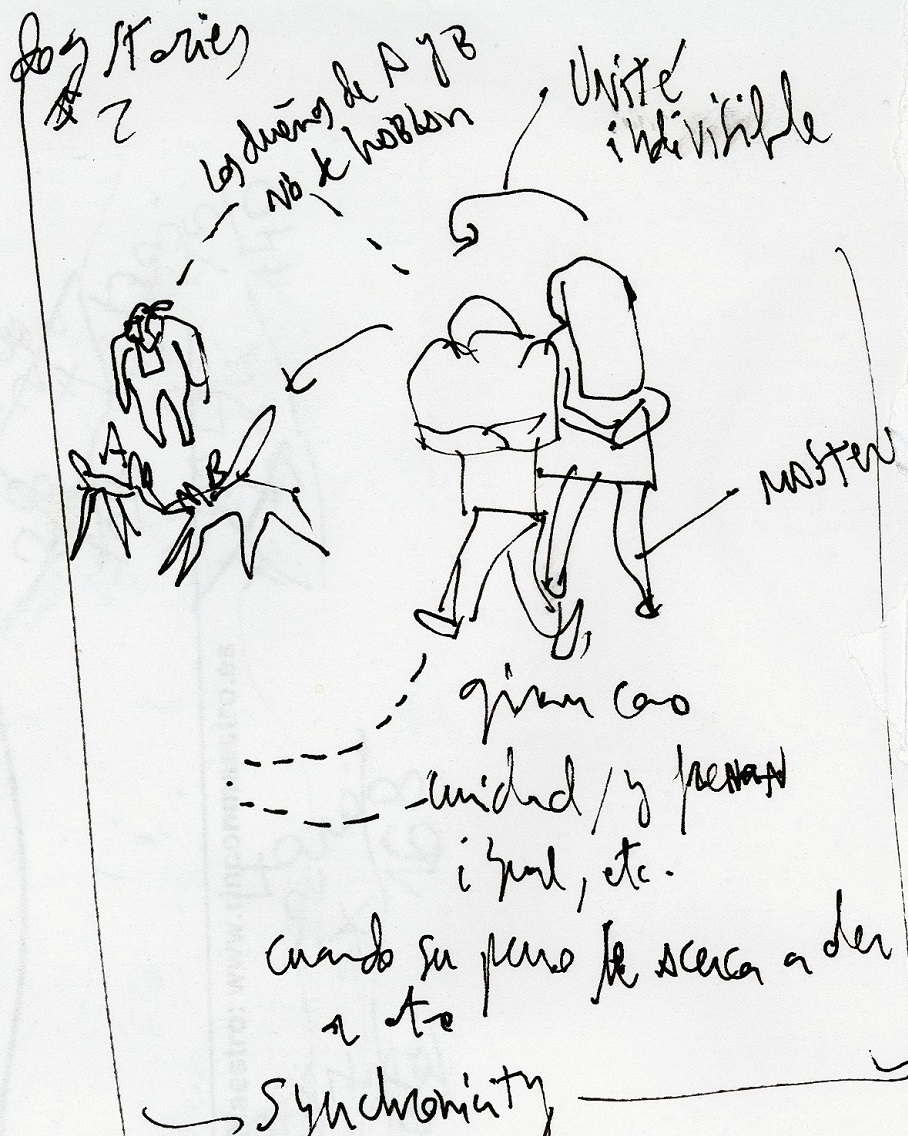 dog stories
# 2
los dueños de A y B
no se hablan
Unité
indivisible
A
B
master
giran como
unidad / y frenan
igual, etc.
cuando su perro se acerca a
Synchronicity